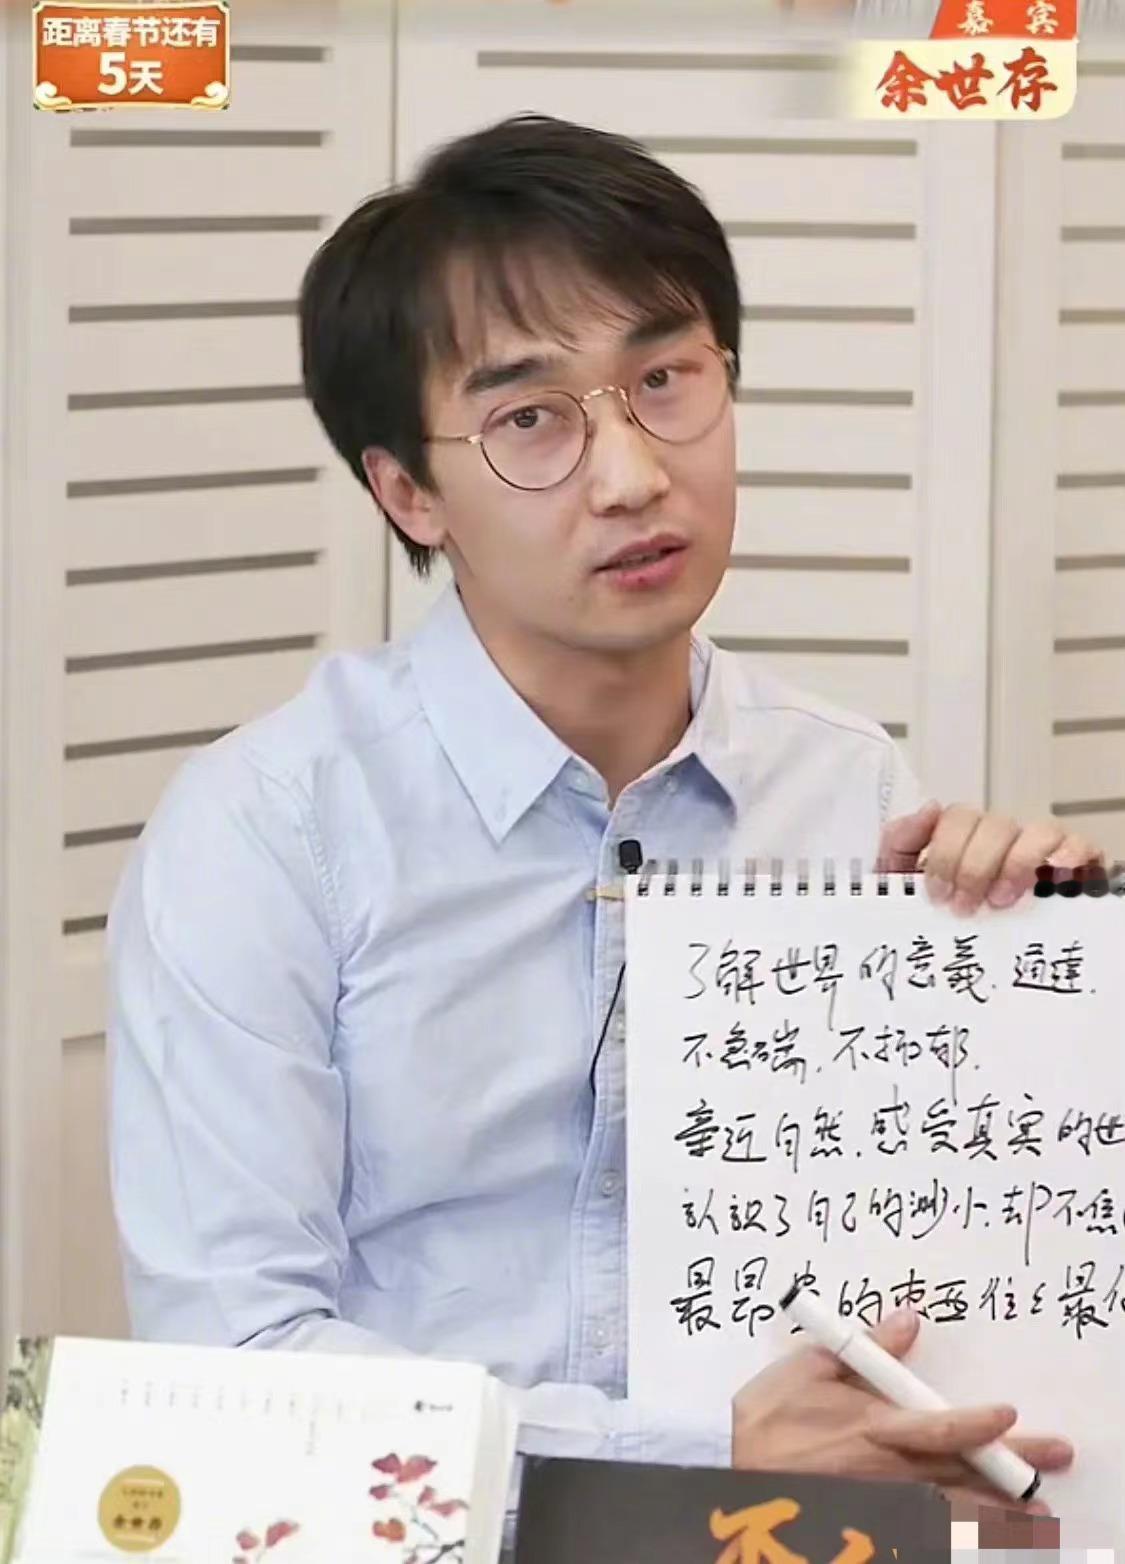 距离春节还有
5天
嘉宾
余世存
了解世界的意義.通達.
不急喘.不抑郁.
亲近自然.感受真实的世
認識了自己的渺小.却不焦
最昂贵的东西往往最
余世存